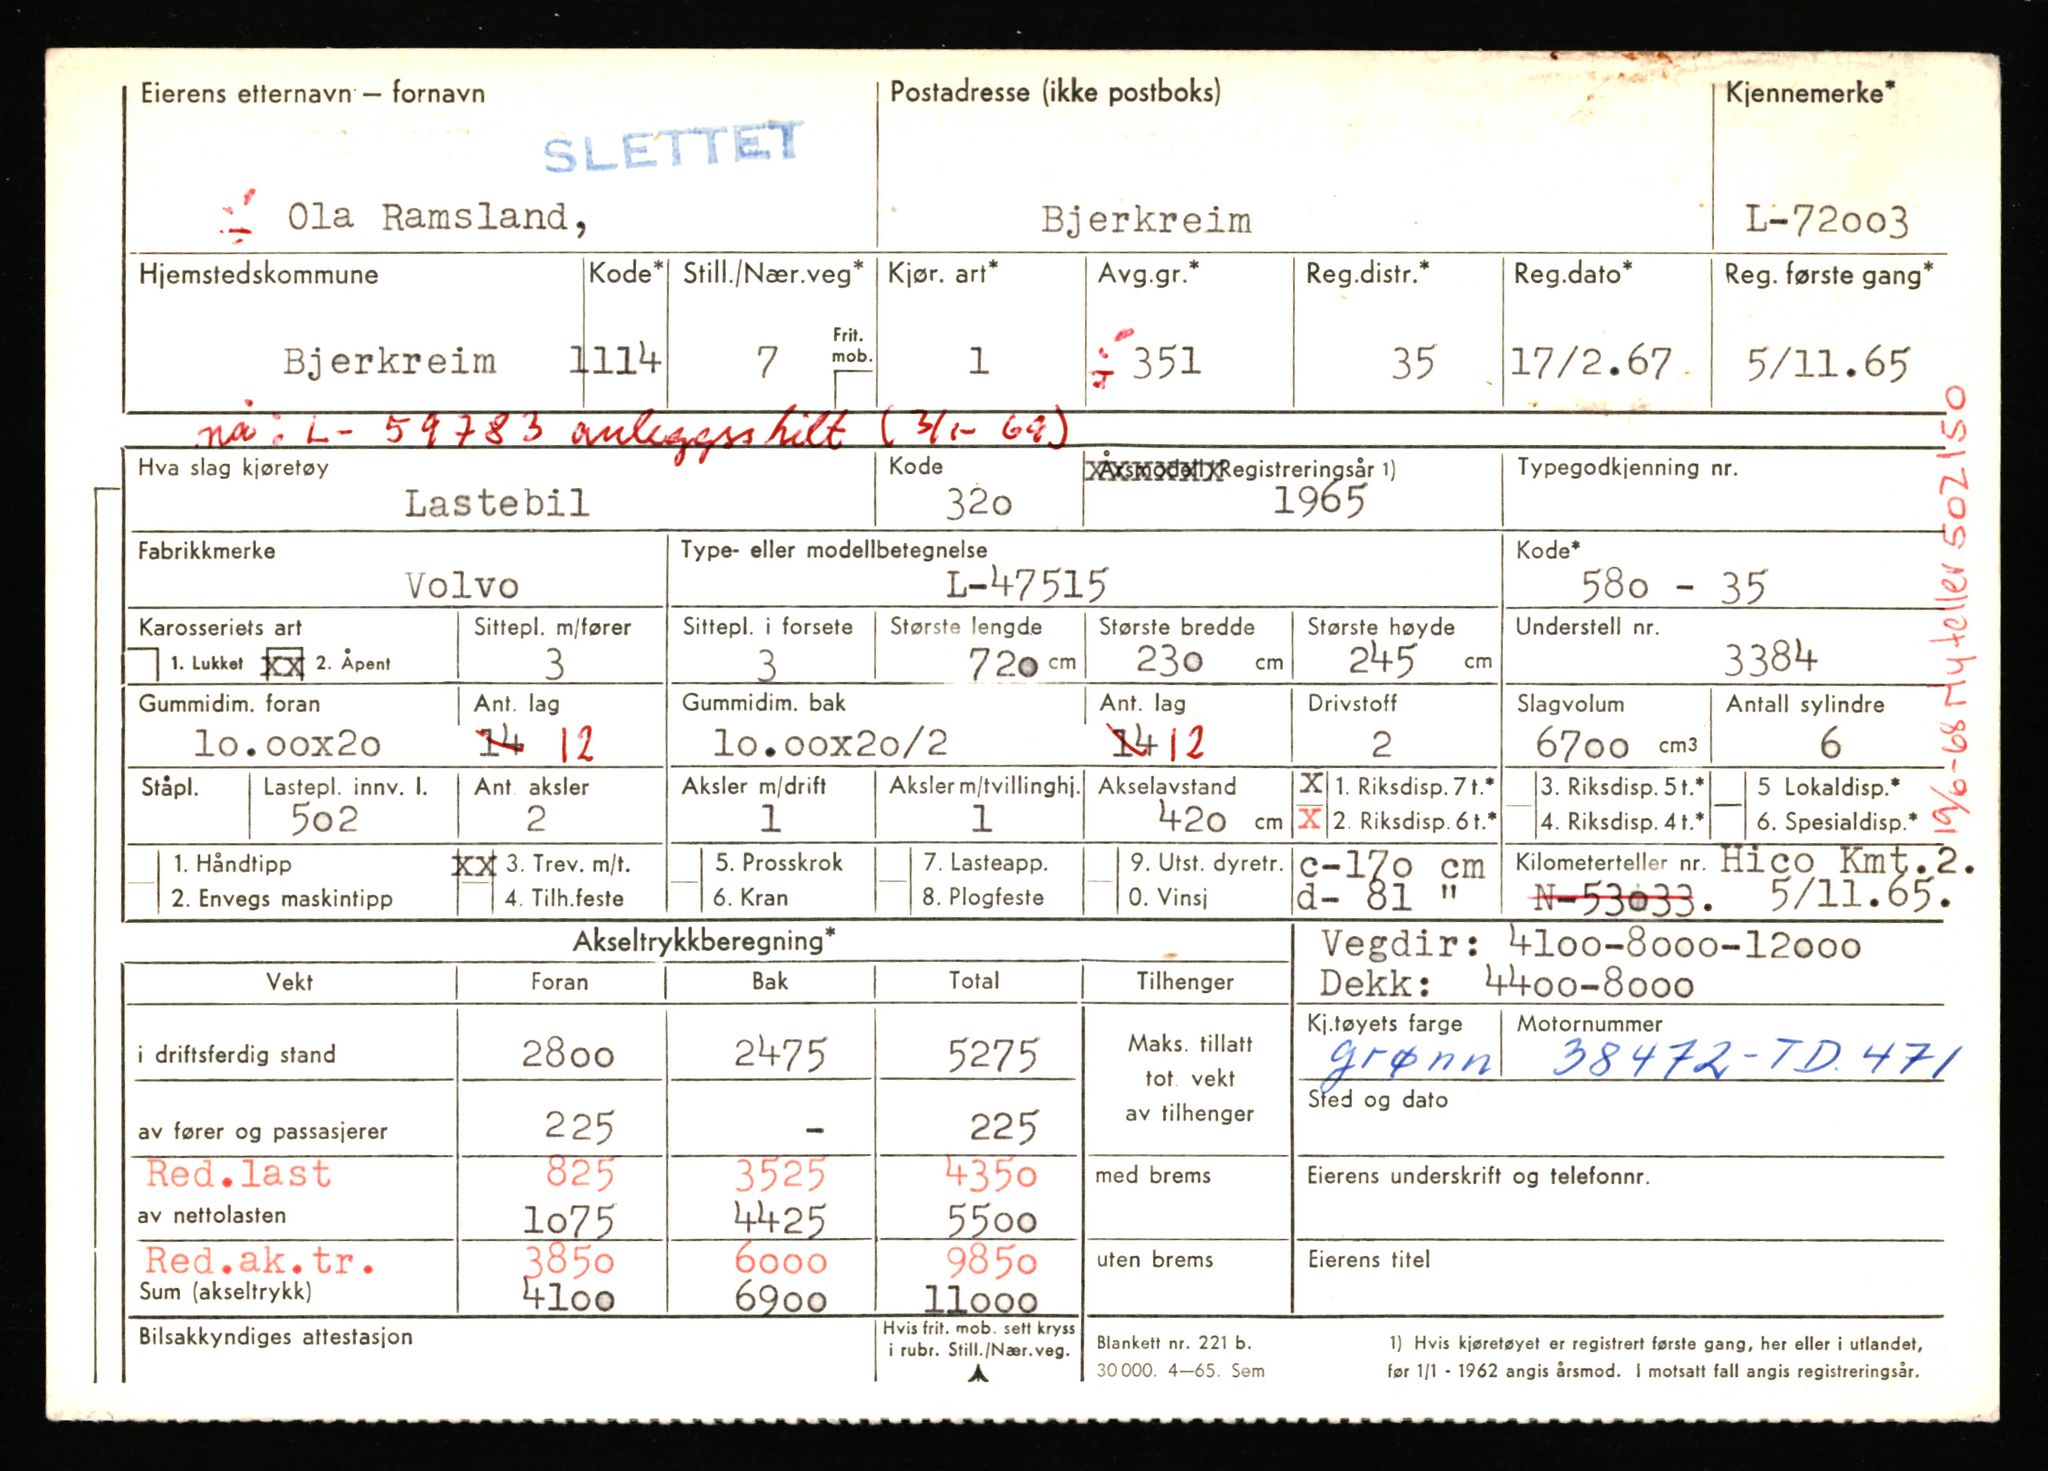 Eierens etternavn — fornavn Postadresse (ikke postboks) Kjennemerke*
SLETTET
Ola Ramsland, Bjerkreim L-72003
Hjemstedskommune Kode* Still./Nær.veg* Kjør. art* Avg.gr.* Reg.distr.* Reg.dato* Reg. første gang*
Frit. mob.
Bjerkreim 1114 7 1 351 35 17/2.67 5/11.65
nå: L- 59783 anleggsskilt (3/1-69)
Hva slag kjøretøy Kode Årsmodell/Registreringsår 1) Typegodkjenning nr.
Lastebil 320 1965
Fabrikkmerke Type- eller modellbetegnelse Kode*
Volvo L-47515 580 - 35
Karosseriets art Sittepl. m/fører Sittepl. i forsete Største lengde Største bredde Største høyde Understell nr.
1. Lukket XX 2. Åpent 3 3 720 cm 230 cm 245 cm 3384
Gummidim. foran Ant. lag Gummidim. bak Ant. lag Drivstoff Slagvolum Antall sylindre
10.00x20 14 12 10.00x20/2 14 12 2 6700 cm3 6
Ståpl. Lastepl. innv. l. Ant. aksler Aksler m/drift Aksler m/tvillinghj. Akselavstand X 1. Riksdisp. 7 t.* 3. Riksdisp. 5 t.* 5 Lokaldisp.*
502 2 1 1 420 cm X 2. Riksdisp. 6 t.* 4. Riksdisp. 4 t.* 6. Spesialdisp.*
1. Håndtipp XX 3. Trev. m/t. 5. Prosskrok 7. Lasteapp. 9. Utst. dyretr. c-170 cm Kilometerteller nr. Hico Kmt.2.
2. Envegs maskintipp 4. Tilh.feste 6. Kran 8. Plogfeste 0. Vinsj d- 81 " N-53033. 5/11.65.
19/6-68 Ny teller 502150
Akseltrykkberegning* Vegdir: 4100-8000-12000
Vekt Foran Bak Total Tilhenger Dekk: 4400-8000
Kj.tøyets farge Motornummer
i driftsferdig stand 2800 2475 5275 Maks. tillatt tot. vekt av tilhenger grønn 38472-TD.471
Sted og dato
av fører og passasjerer 225 - 225
Red.last 825 3525 4350 med brems Eierens underskrift og telefonnr.
av nettolasten 1075 4425 5500
Red.ak.tr. 3850 6000 9850 uten brems Eierens titel
Sum (akseltrykk) 4100 6900 11000
Bilsakkyndiges attestasjon Hvis frit. mob. sett kryss i rubr. Still./Nær.veg. Blankett nr. 221 b. 1) Hvis kjøretøyet er registrert første gang, her eller i utlandet,
30 000. 4—65. Sem før 1/1 - 1962 angis årsmod. I motsatt fall angis registreringsår.